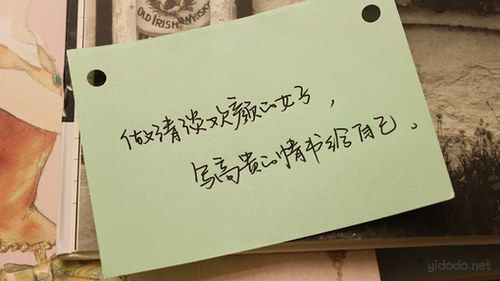 OLD IRISH WHISKY
做清淡欢颜的女子，
写高贵的情书给自己。
yidodo.net